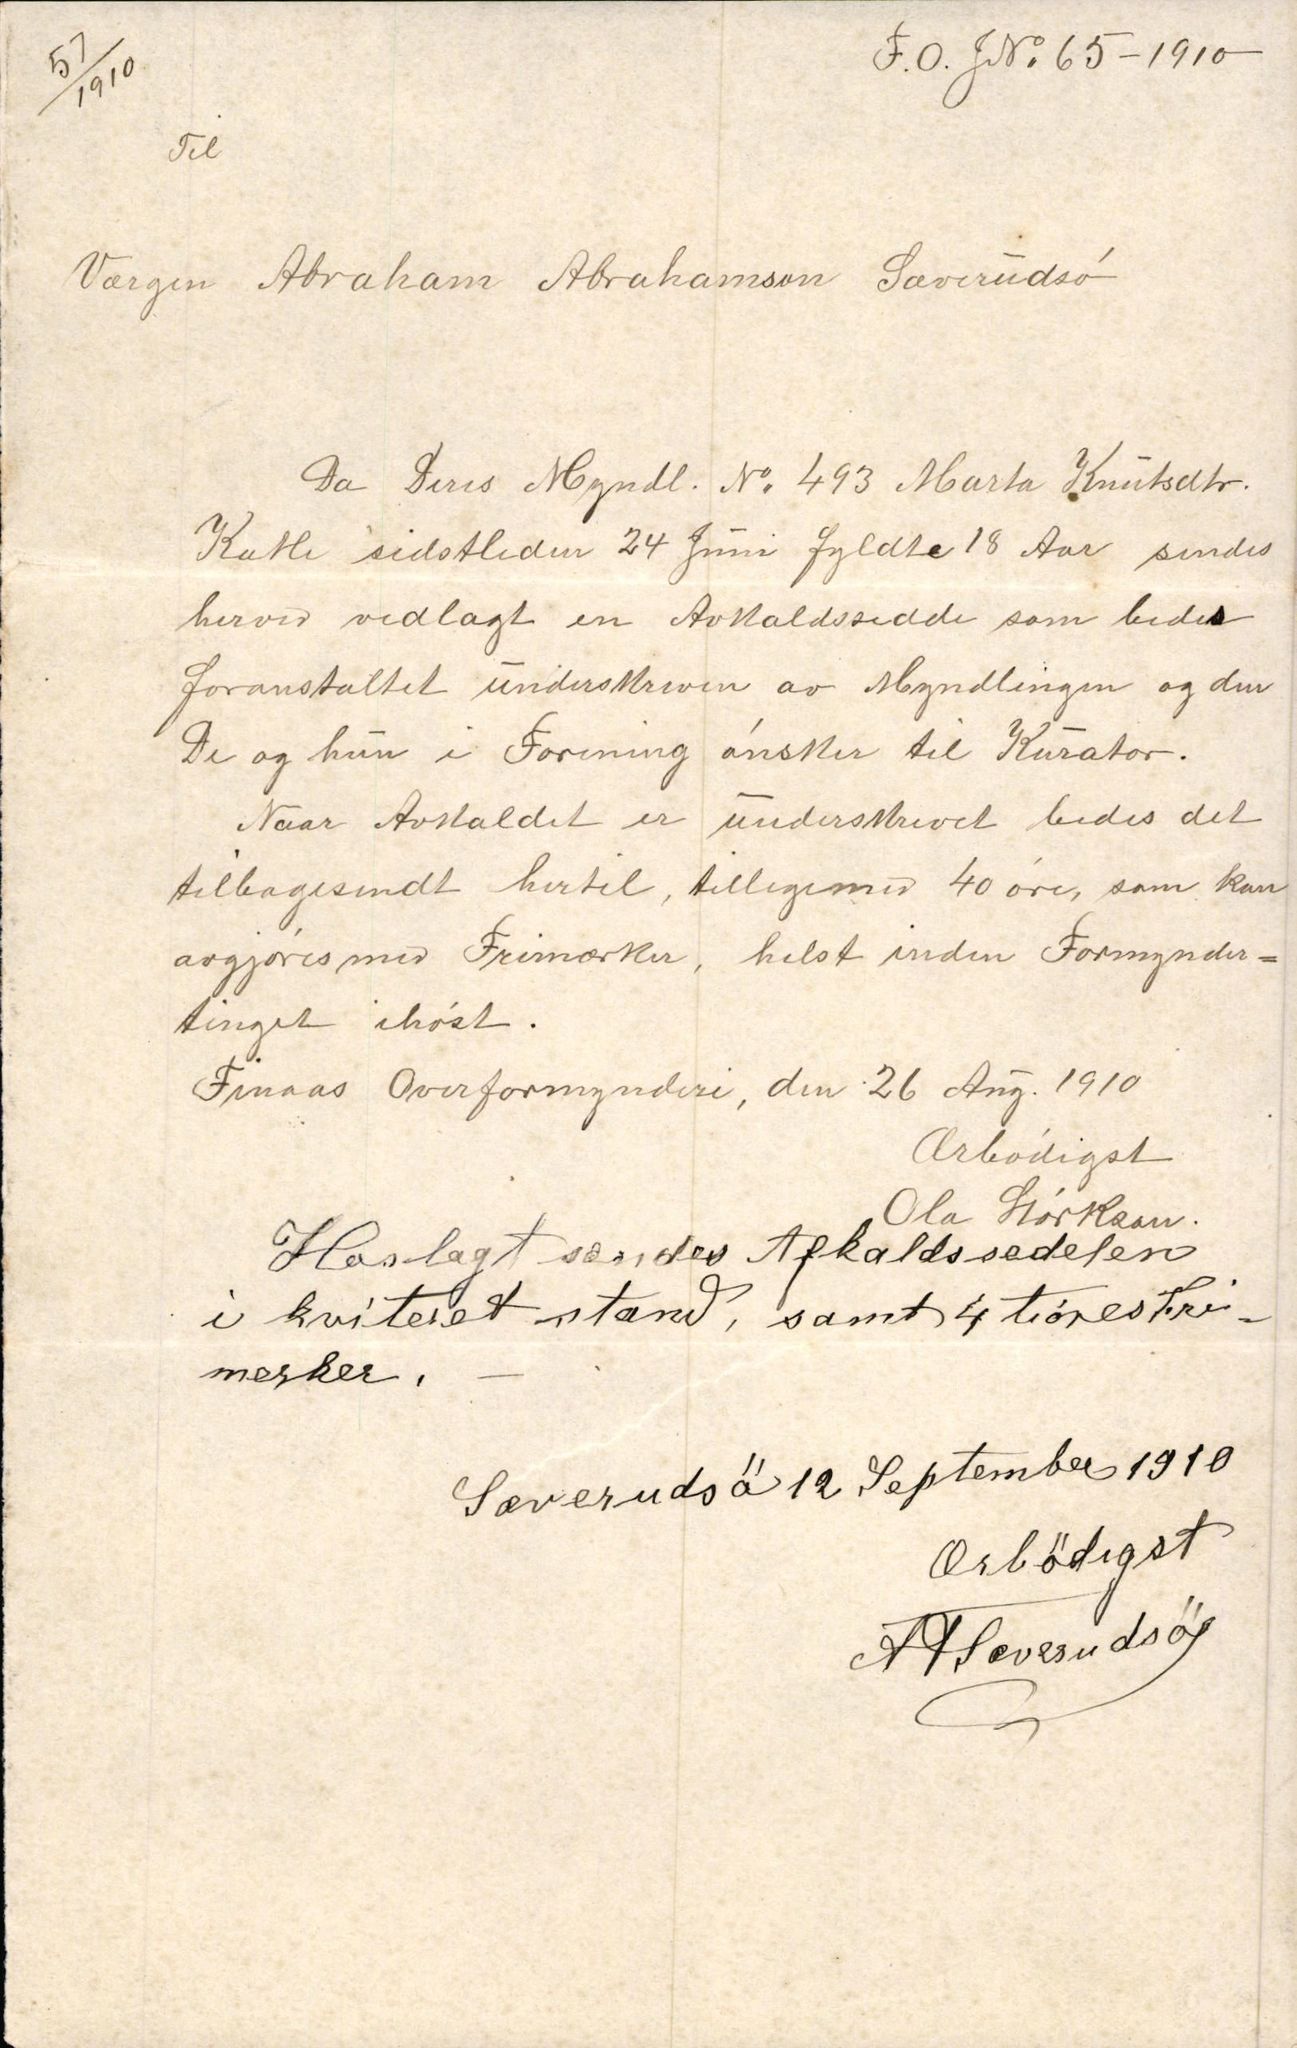 57/1910
F.O. J.No. 65-1910
Til
Værgen Abraham Abrahamson Sæverudsö
Da Deres Myndl. No. 493 Marta Knutsdtr.
Katle sidstleden 24 Juni fyldte 18 Aar sendes
herved vedlagt en Avkaldsseddel som bedes
foranstaltet underskreven av Myndlingen og den
De og hun i Forening önsker til Kurator.
Naar Avkaldet er underskrevet bedes det
tilbagesendt hertil, tilligemed 40 öre, som kan
avgjöres med Frimærker, helst inden Formynder=
tinget ihöst.
Finaas Overformynderi, den 26 Aug. 1910
Ærbödigst
Ola Störkson.
Hoslagt sendes Afkaldssedelen
i kviteret stand, samt 4 tiöres Fri-
merker. —
Sæverudsö 12 September 1910
Ærbödigst
A A Sæverudsög